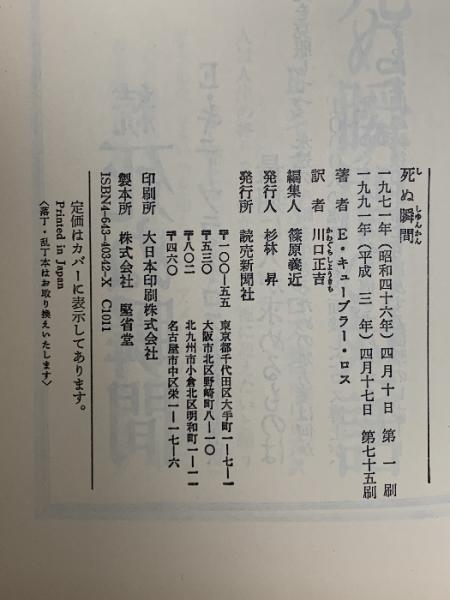 死ぬ瞬間
しゅんかん
一九七一年(昭和四十六年)四月十日 第一刷
一九九一年(平成三年)四月十七日 第七十五刷
著者 E・キューブラー・ロス
かわぐちしょうきち
訳者 川口正吉
編集人 篠原義近
発行人 杉林昇
発行所 読売新聞社
〒一〇〇-五五 東京都千代田区大手町一-七-一
〒五三〇 大阪市北区野崎町八-一〇
〒八〇二 北九州市小倉北区明和町一-一一
〒四六〇 名古屋市中区栄一-一七-六
印刷所 大日本印刷株式会社
製本所 株式会社 堅省堂
ISBN4-643-40342-X C1011
定価はカバーに表示してあります。
Printed in Japan
〈落丁・乱丁本はお取り換えいたします〉